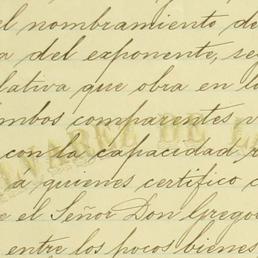 el nombramiento de
a del exponente, se
lativa que obra en lo
ambos comparentes v
con la capacidad r
a quienes certifico c
e el Señor Don Grego
entre los pocos bienes
ALVAREZ DE L